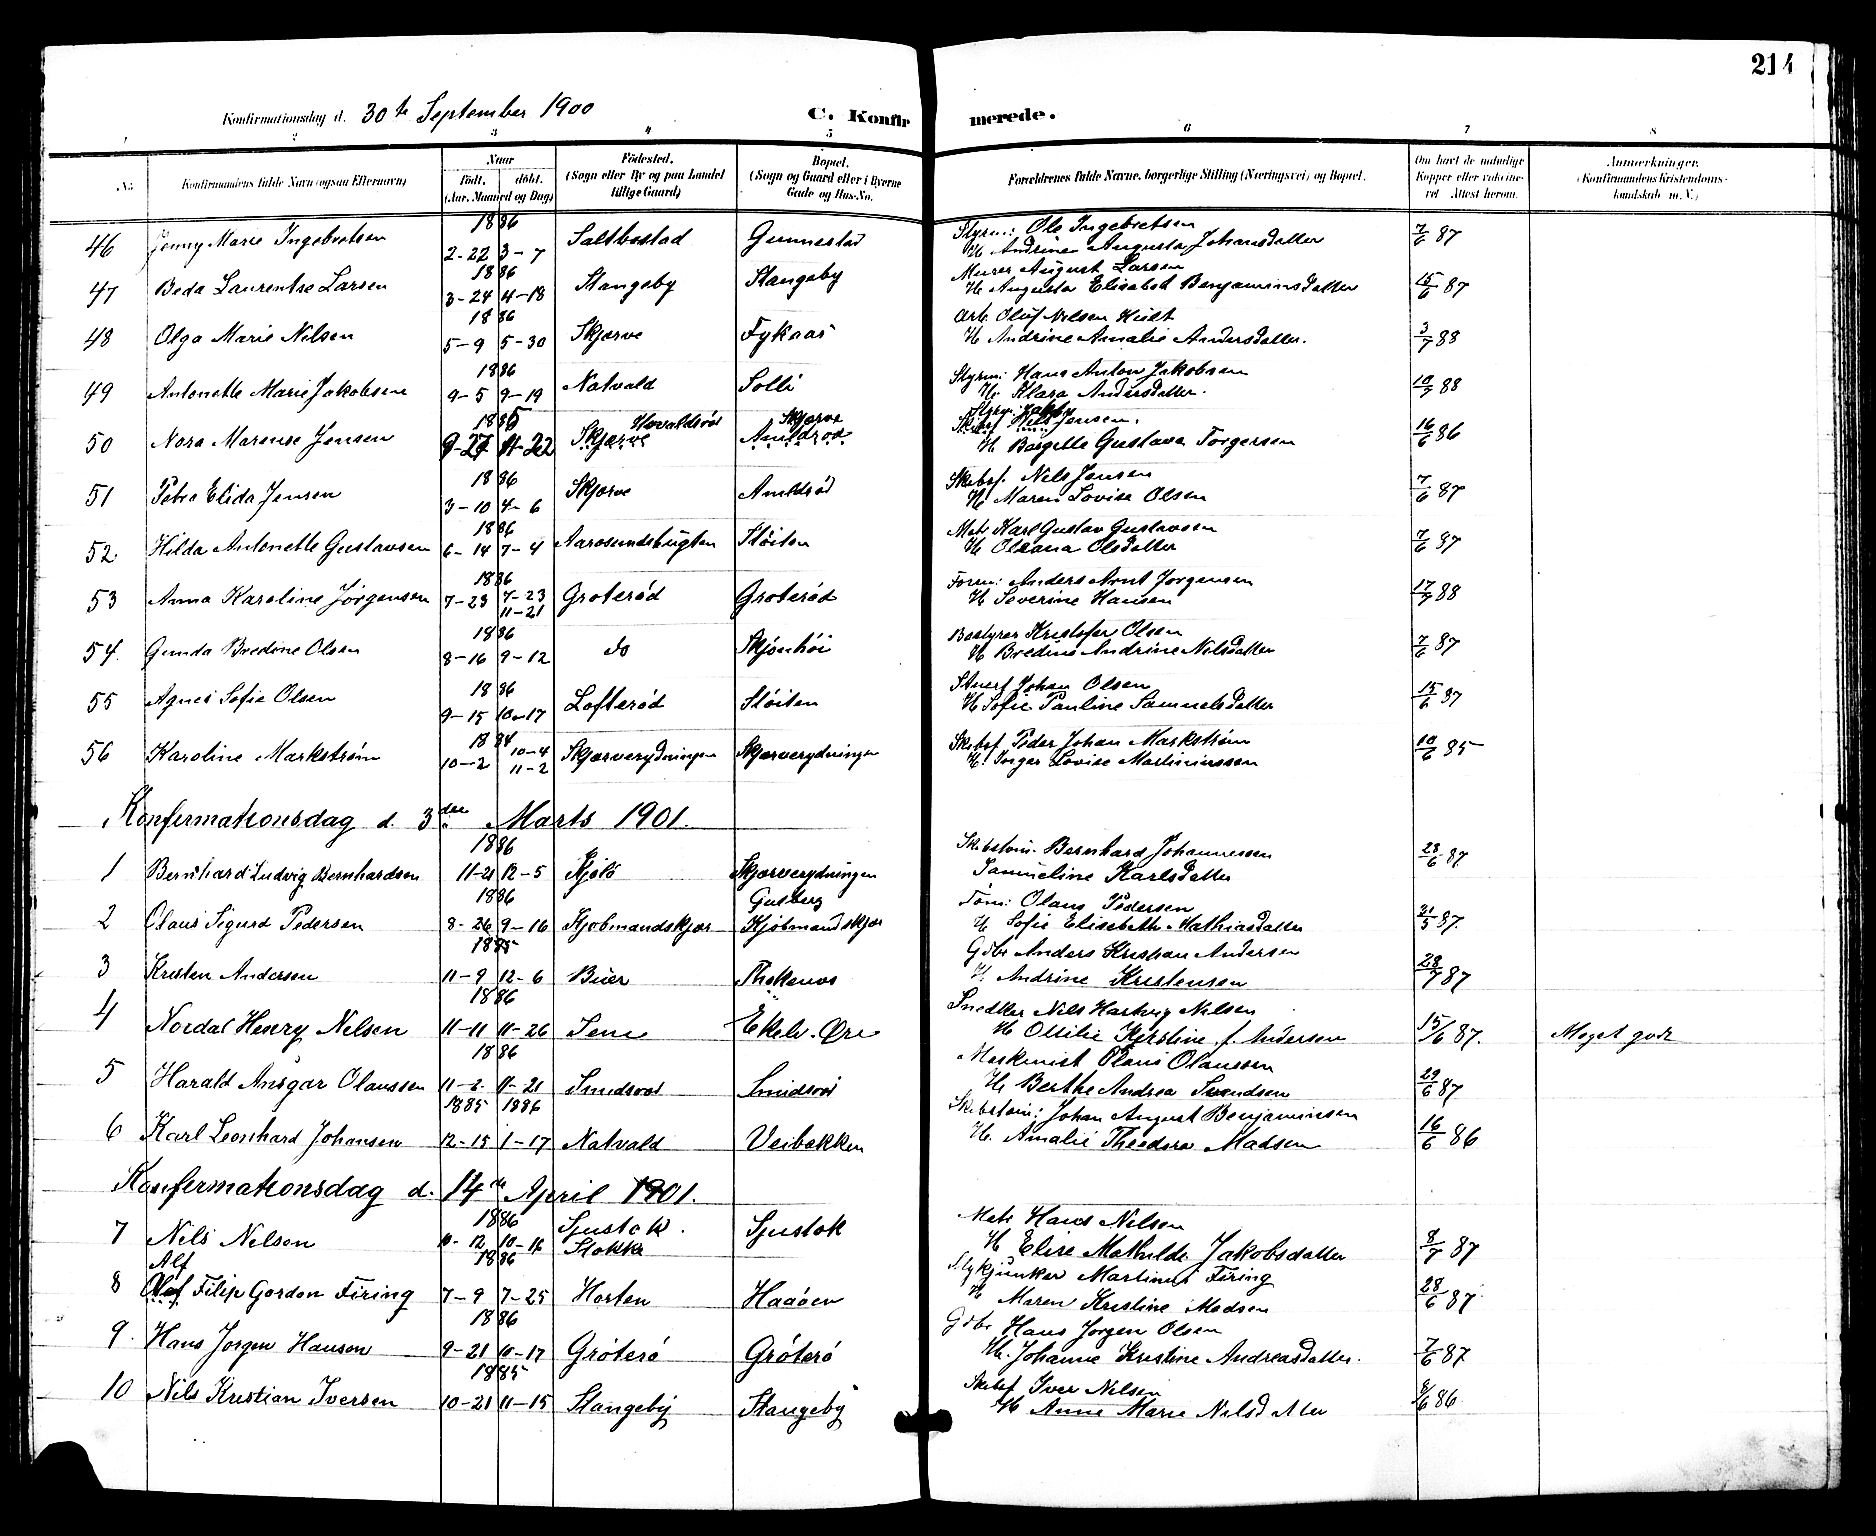 214
Konfirmationsdag d. 30te September 1900 C. Konfirmerede.
1 2 3 4 5 6 7 8
No. Konfirmandens fulde Navn (ogsaa Efternavn) Naar födt. döbt. (Aar, Maaned og Dag) Födested. (Sogn eller By og paa Landet tillige Gaard) Bopæl. (Sogn og Gaard eller i Byerne Gade og Hus-No. Forældrenes fulde Navne, borgerlige Stilling (Næringsvei) og Bopæl. Om havt de naturlige Kopper eller vaccineret. Attest herom. Anmærkninger. (Konfirmandens Kristendomskundskab m. V.)
46 Jenny Marie Ingebretsen 1886 2-22 3-7 Saltbostad Gunnestad Styrm: Ole Ingebretsen 7/6 87
H. Andrine Augusta Johansdatter
47 Beda Laurentse Larsen 1886 3-24 4-18 Stangeby Stangeby Murer August Larsen 15/6 87
H. Augusta Elisabet Benjaminsdatter
48 Olga Marie Nilsen 1886 5-9 5-30 Skjærve Fyksas Arb. Oluf Nilsen Hvidt 3/7 88
H Andrine Amalie Andersdatter.
49 Antonette Marie Jakobsen 1886 9-5 9-19 Natvald Solli Styrm: Hans Anton Jakobsen 10/7 88
H. Klara Andersdatter.
50 Nora Marense Jensen 1885 9-27 11-22 Skjærve Havaldsröd Skjærve Amldröd Skibsf. Nils Jensen. 16/6 86
H Borgette Gustava Torgersen
51 Petra Elida Jensen 1886 3-10 4-6 Skjærve Amldröd Skibsf. Nils Jensen 7/6 87
H. Maren Lovise Olsen
52 Hilda Antonette Gustavsen 1886 6-14 7-4 Aarosundsbugten Stöiten Matr. Karl Gustav Gustavsen 7/6 87
H Oleana Olsdatter
53 Anna Karoline Jörgensen 1886 7-23 7-23 11-21 Groteröd Groteröd Form: Anders Arnt Jorgensen 17/7 88
H Severine Hansen
54. Gunda Bredine Olsen 1886 8-16 9-12 do Skjönhöi Bestyrer Kristofer Olsen 7/6 87
H Bredine Andrine Nilsdatter
55 Agnes Sofie Olsen 1886 9-15 10-17 Lofteröd Stöiten Stuert Johan Olsen 15/6 87
H Sofie Pauline Samuelsdatter
56 Karoline Markström 1884 10-2 10-4 11-2 Skjærverydningen Skjærverydningen Skibsf. Peder Johan Markström 10/6 85
H. Inger Lovise Martiniussen
Konfermationsdag d. 3die Marts 1901.
1 Bernhard Ludvig Bernhardsen 1886 11-21 12-5 Kjölö Skjærverydningen Skibstöm. Bernhard Johannessen 28/6 87
Samueline Karlsdatter
2 Olaus Sigurd Pedersen 1886 8-26 9-16 Kjøbmandskjær Gusberg Kjöbmandskjær Töm: Olaus Pedersen 21/5 87.
H Sofie Elisabeth Mathiasdatter
3 Kristen Andersen 1885 11-9 12-6 Buer Thokenes Gdbr Anders Kristian Andersen 28/7 87
H. Andrine Kristensen
4 Nordal Henry Nilsen 1886 11-11 11-26 Tene Ekelv. Öre Snedker Nils Hartvig Nilsen 15/6 87. Meget godt
H Ottilie Kirstine f. Andersen
5 Harald Ansgar Olaussen 1886 11-2. 11-21 Smidsrod Smidsröd Maskinist Olaus Olaussen 29/6 87
H. Berthe Andrea Svendsen
6 Karl Leonhard Johansen 1885 1886 12-15 1-17 Natvald Veibakken Skibstöm: Johan August Benjaminsen 16/6 86
H. Amalie Theodora Madsen
Konfermationsdag d. 14de April 1901.
7 Nils Nilsen 1886 10-12 10-14 Sjustok. Stokke Sjustok Matr Hans Nilsen 8/7 87
H Elise Mathilde Jakobsdatter
8 Alf Olaf Filip Gordon Firing 1886 7-9 7-25 Horten Haaöen Stykjunker Martinus Firing 28/6 87
H Maren Kristine Madsen
9. Hans Jorgen Hansen 1886 9-21 10-17 Gröterö Gröterö Gdbr Hans Jorgen Olsen 7/6 87
H. Johanne Kristine Andreasdatter.
10 Nils Kristian Iversen 1885 10-21 11-15 Stangeby Stangeby Skibsf Iver Nilsen 8/6 86
H Anne Marie Nilsdatter